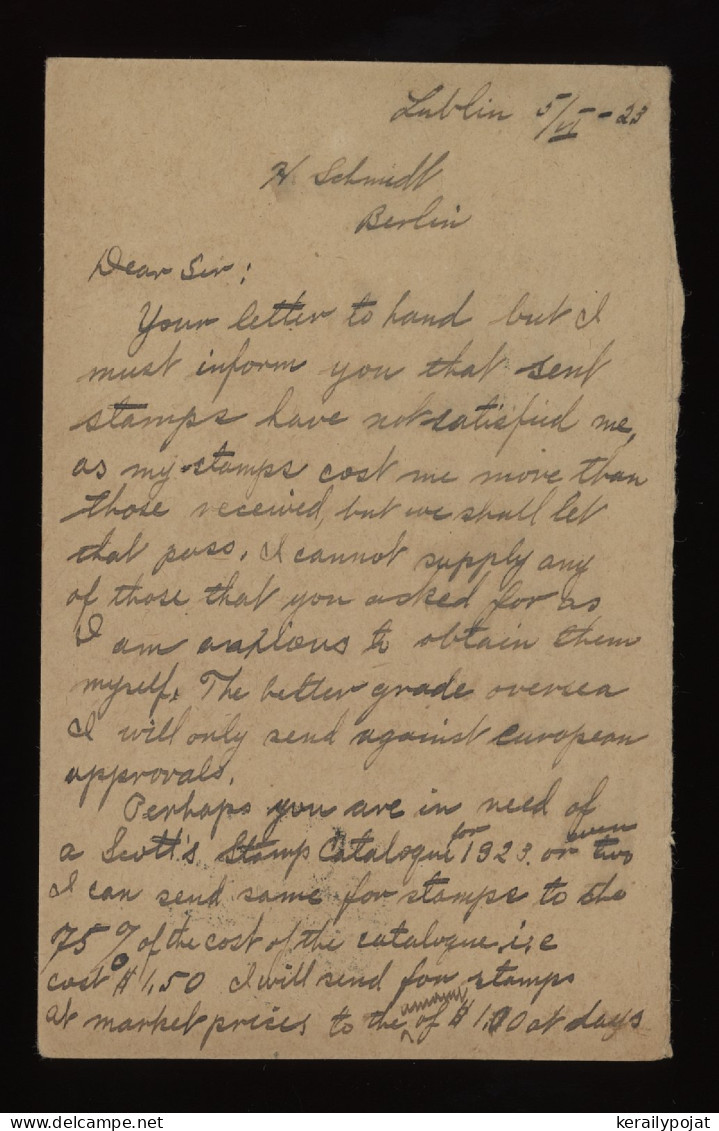 Lublin 5/VI - 23
H. Schmidt
Berlin
Dear Sir:
Your letter to hand but I
must inform you that sent
stamps have not satisfied me,
as my stamps cost me more than
those received, but we shall let
that pass. I cannot supply any
of those that you asked for as
I am anxious to obtain them
myself. The better grade oversea
I will only send against european
approvals.
Perhaps you are in need of
a Scott's Stamp Catalogue for 1923. or even two
I can send same for stamps to the
75% of the cost of the catalogue i,e
cost $1,50 I will send for stamps
at market prices to the amount of $1,10 at days
kerailypojat